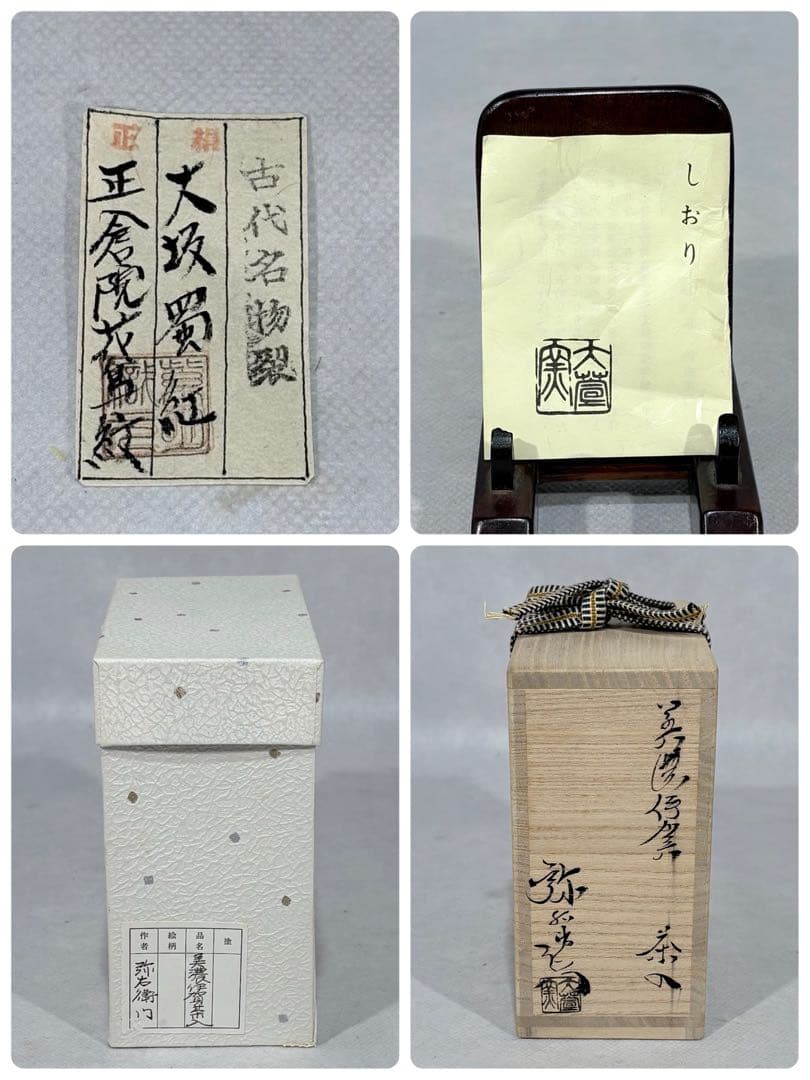 古代名物裂
大坂蜀紅
正倉院花鳥紋
しおり
天萱窯
塗
品名
美濃伊賀茶入
絵柄
作者
弥右衛門
美濃伊賀
茶入
天萱窯